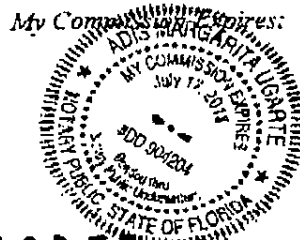 My Commission Expires:
ADIS MARGARITA UGARTE
MY COMMISSION EXPIRES
JULY 12, 2013
#DD 904204
Bonded thru
NOTARY PUBLIC, STATE OF FLORIDA